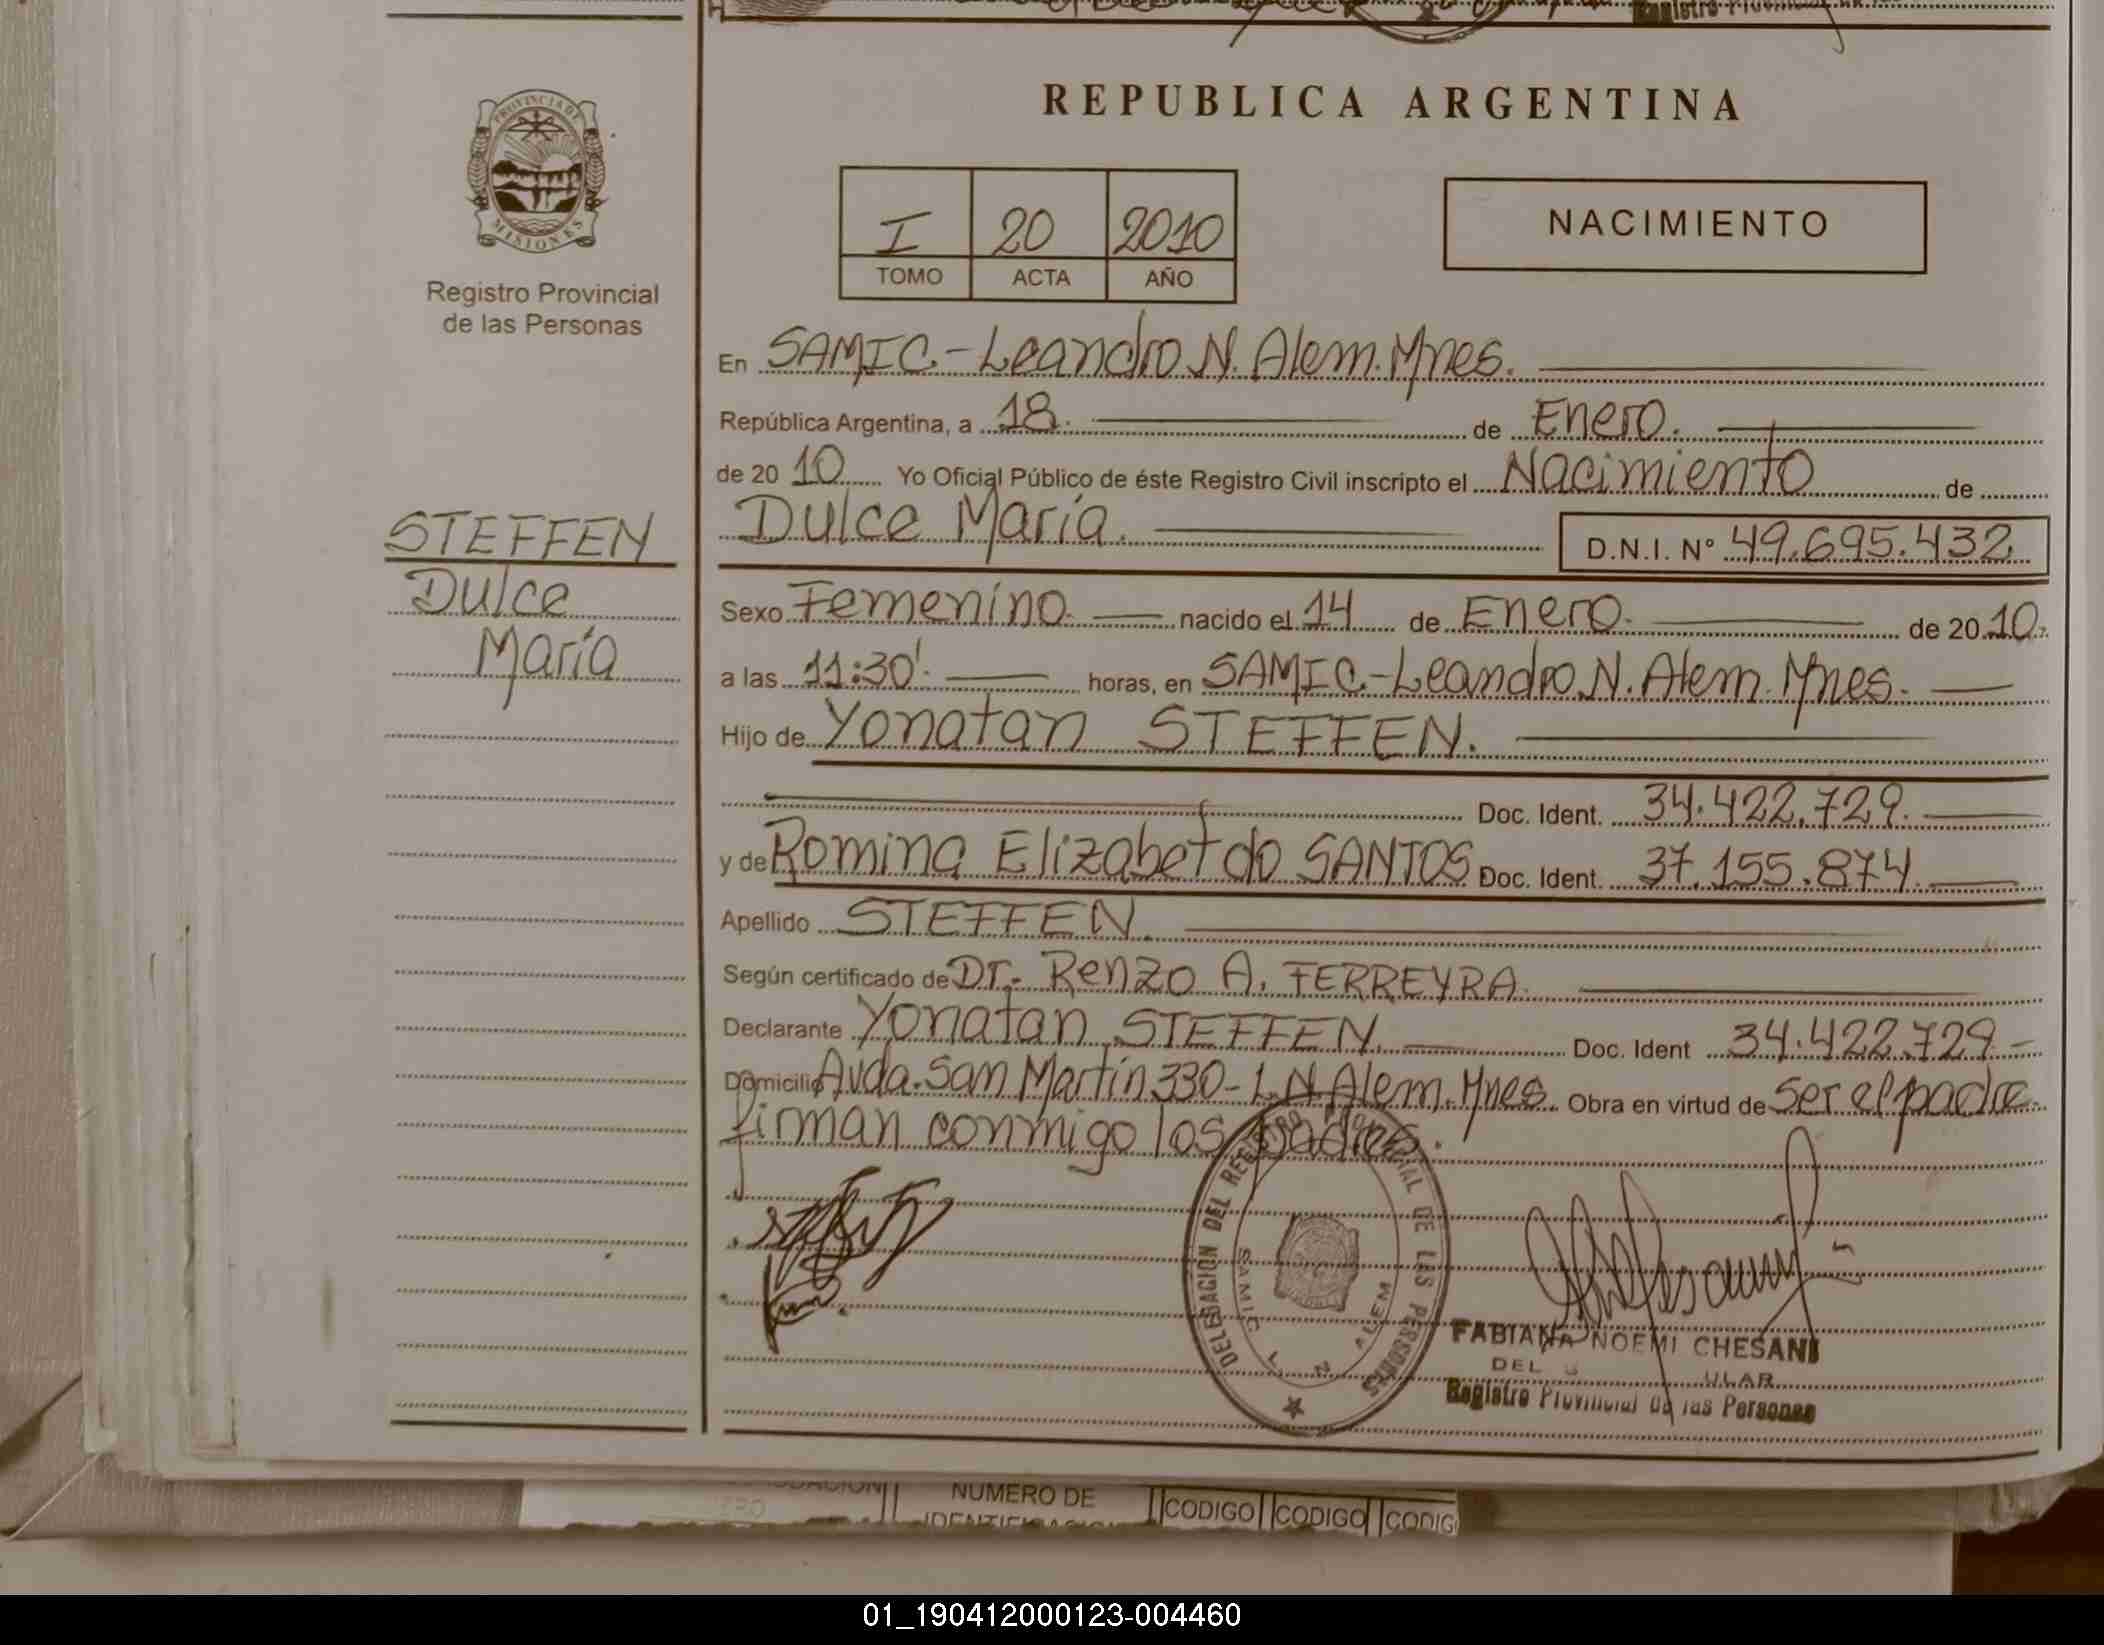 REPUBLICA ARGENTINA
PROVINCIA DE
MISIONES
Registro Provincial
de las Personas
I 20 2010
TOMO ACTA AÑO
NACIMIENTO
En SAMIC.-Leandro N. Alem. Mnes.
República Argentina, a 18. de Enero.
de 20 10 Yo Oficial Público de éste Registro Civil inscripto el Nacimiento de
Dulce María. D.N.I. N° 49.695.432
STEFFEN
Dulce
María
Sexo Femenino. nacido el 14 de Enero. de 20 10.
a las 11:30'. horas, en SAMIC.-Leandro N. Alem. Mnes.
Hijo de Yonatan STEFFEN.
Doc. Ident. 34.422.729.
y de Romina Elizabet do SANTOS Doc. Ident. 37.155.874.
Apellido STEFFEN.
Según certificado de Dr.- Renzo A. FERREYRA.
Declarante Yonatan STEFFEN. Doc. Ident 34.422.729-
Domicilio Avda. San Martín 330-L.N.Alem. Mnes. Obra en virtud de ser el padre.
firman conmigo los padres.
DELEGACION DEL REGISTRO PROVINCIAL DE LAS PERSONAS
SAMIC
ALEM
FABIANA NOEMI CHESANI
Registro Provincial de las Personas
NUMERO DE
CODIGO CODIGO
01_190412000123-004460